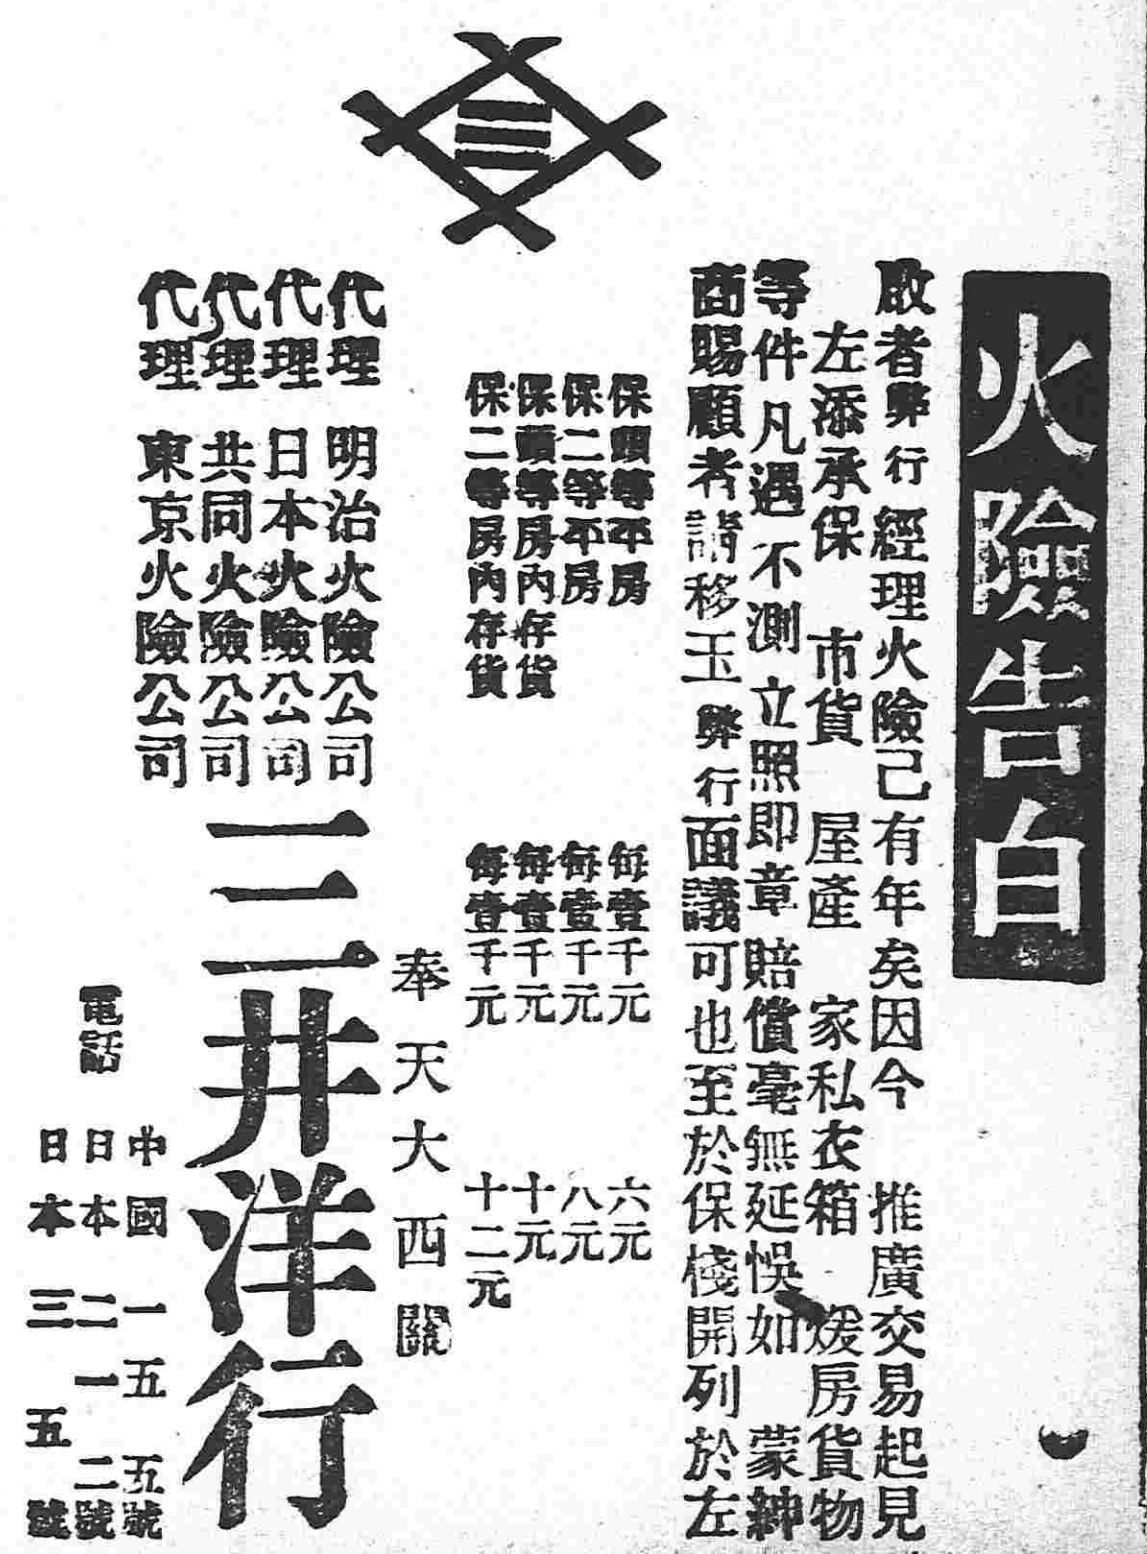 火險告白
啟者弊行經理火險己有年矣因今 推廣交易起見
左添承保 市貨 屋產 家私衣箱 煖房貨物
等件凡遇不測立照即章賠償毫無延悞如 蒙紳
商賜顧者請移玉弊行面議可也至於保棧開列於左
保頭等平房 每壹千元 六元
保二等平房 每壹千元 八元
保頭等房內存貨 每壹千元 十元
保二等房內存貨 每壹千元 十二元
奉天大西關
三井洋行
代理 明治火險公司
代理 日本火險公司
代理 共同火險公司
代理 東京火險公司
電話
中國 一五五號
日本 二一二號
日本 三五號